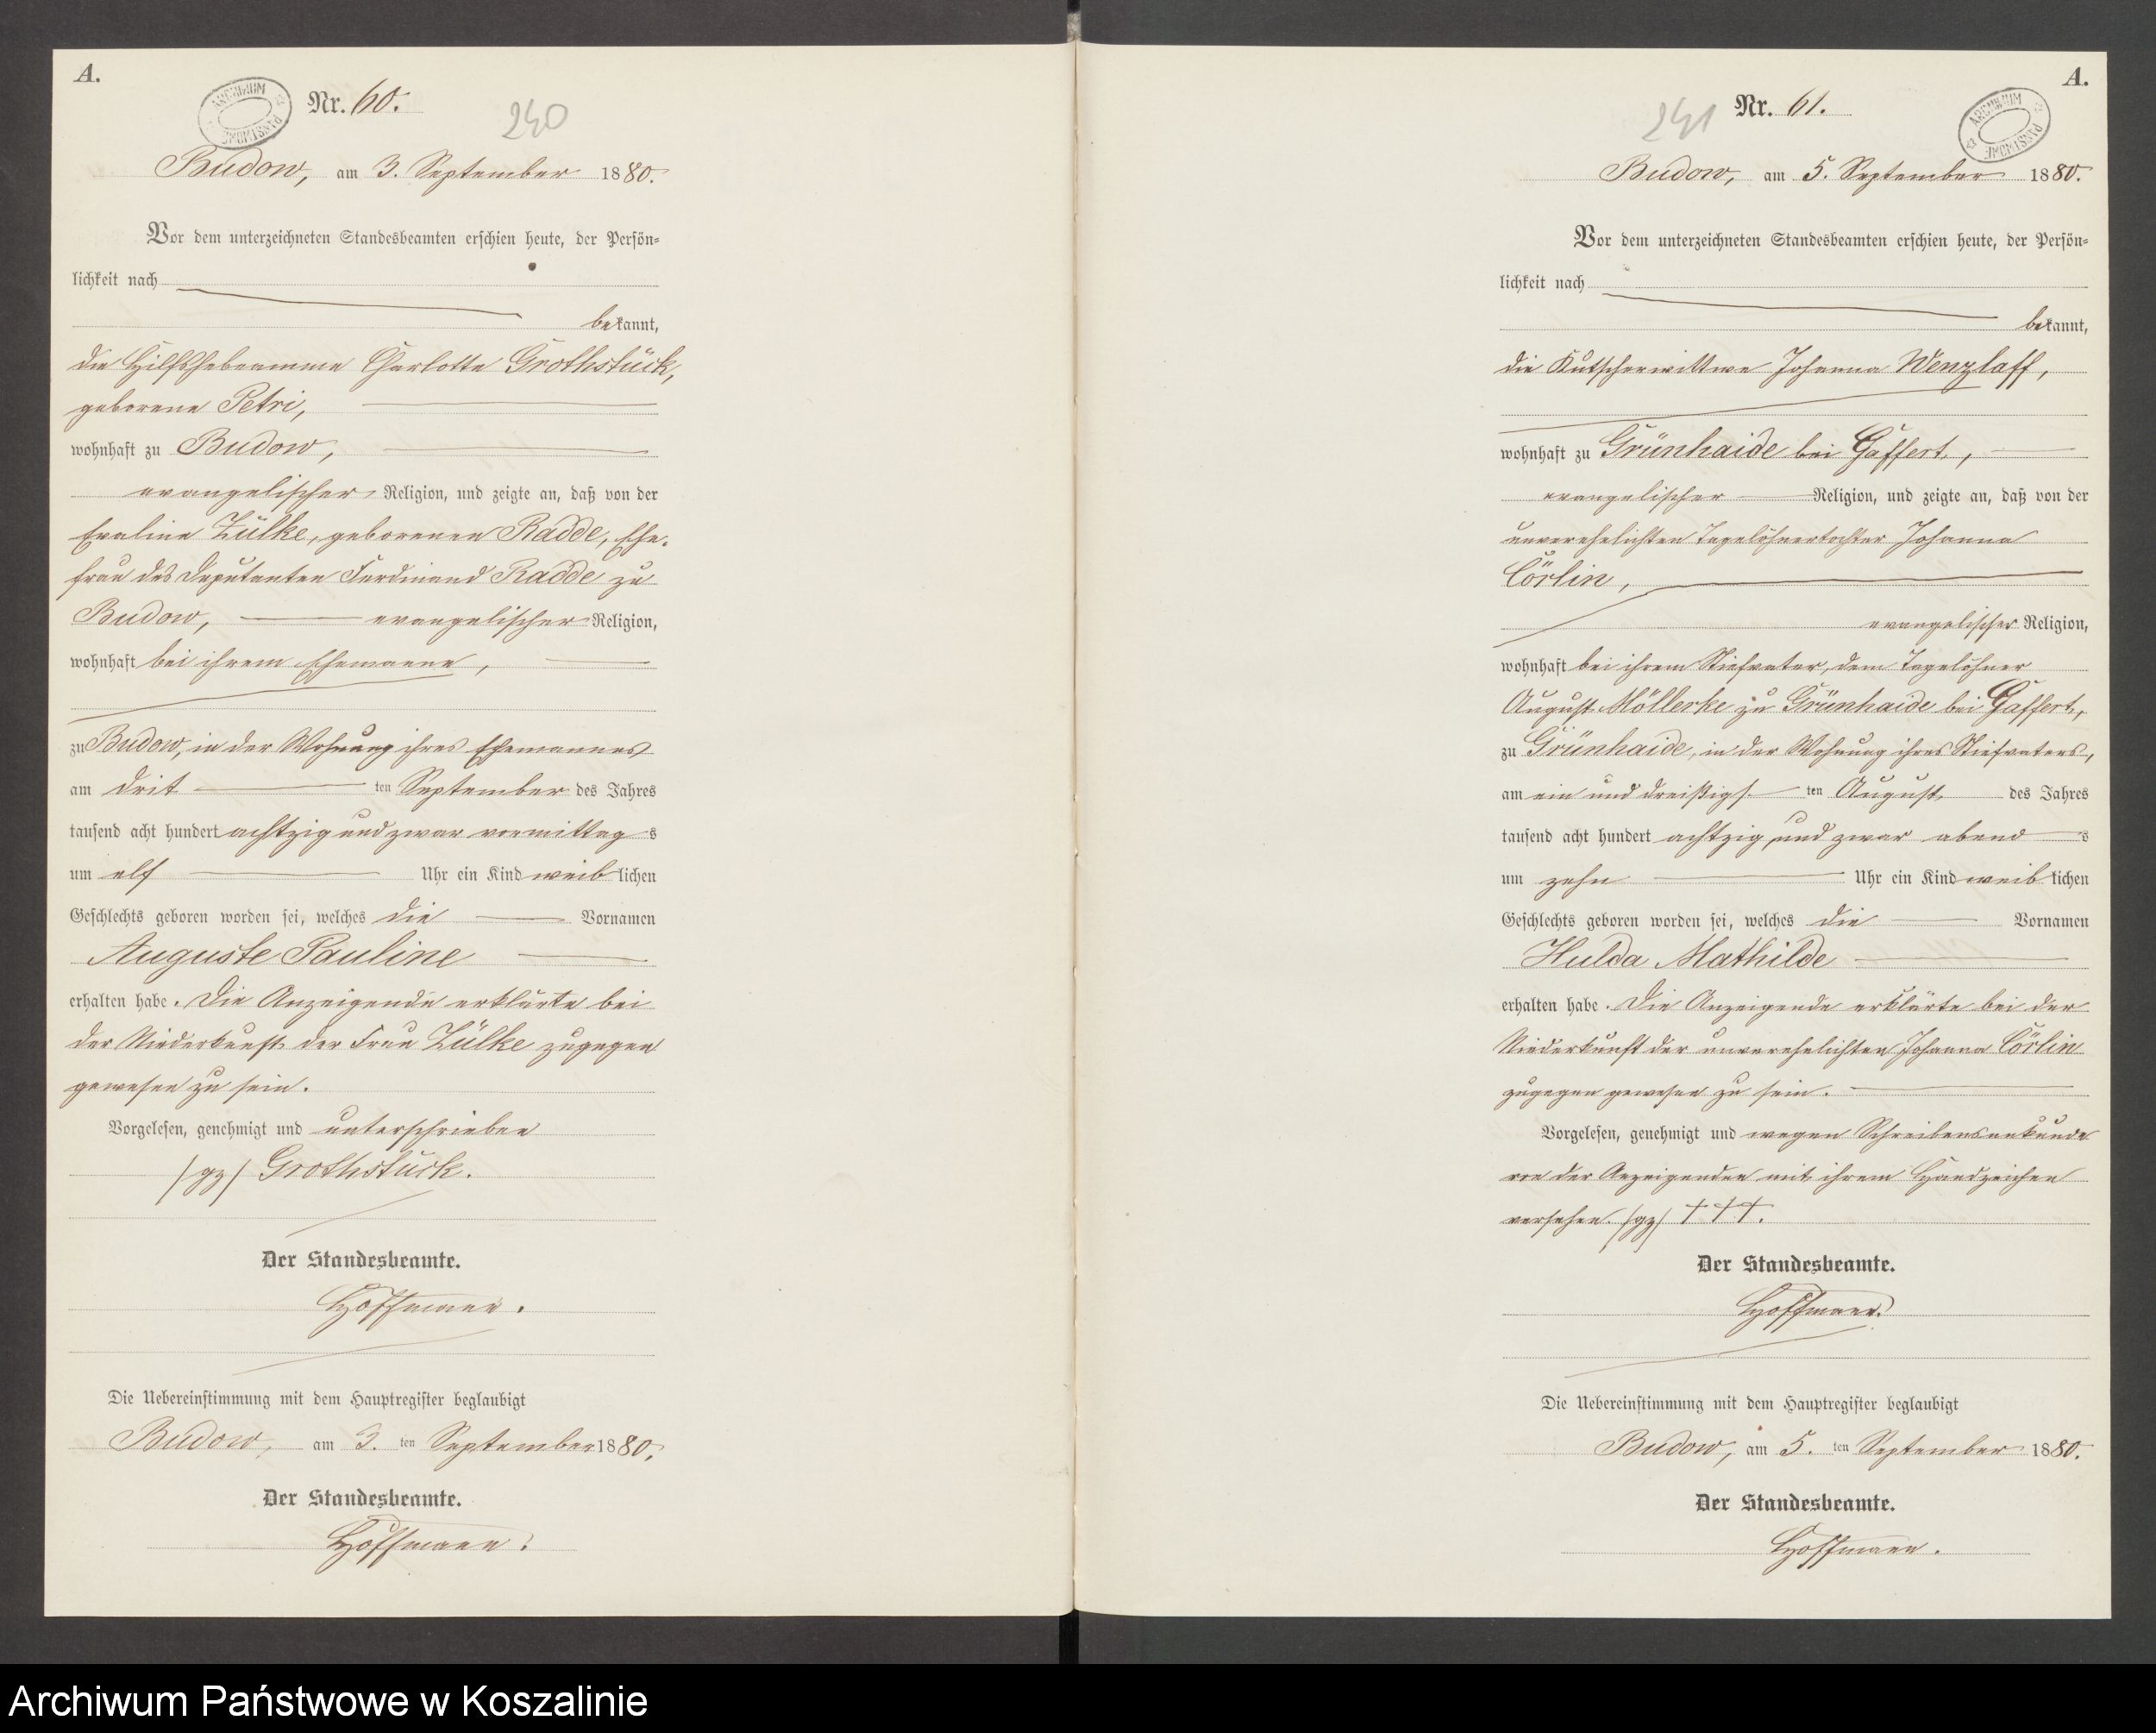 A.
ARCHIWUM PAŃSTWOWE
Nr. 60.
240
Budow, am 3. September 1880.
Vor dem unterzeichneten Standesbeamten erschien heute, der Persön-
lichkeit nach
bekannt,
die Hilfshebeamme Charlotte Grothstück,
geborene Petri,
wohnhaft zu Budow,
evangelischer Religion, und zeigte an, daß von der
Eveline Zülke, geborenen Radde, Ehe-
frau des Deputanten Ferdinand Radde zu
Budow, evangelischer Religion,
wohnhaft bei ihrem Ehemanne,
zu Budow, in der Wohnung ihres Ehemannes
am drit ten September des Jahres
tausend acht hundert achtzig und zwar vormittags
um elf Uhr ein Kind weiblichen
Geschlechts geboren worden sei, welches die Vornamen
Auguste Pauline
erhalten habe. Die Anzeigende erklärte bei
der Niederkunft der Frau Zülke zugegen
gewesen zu sein.
Vorgelesen, genehmigt und unterschrieben
/gz/ Grothstück.
Der Standesbeamte.
Hoffmann.
Die Uebereinstimmung mit dem Hauptregister beglaubigt
Budow, am 3. ten September 1880.
Der Standesbeamte.
Hoffmann.
A.
ARCHIWUM PAŃSTWOWE
241
Nr. 61.
Budow, am 5. September 1880.
Vor dem unterzeichneten Standesbeamten erschien heute, der Persön-
lichkeit nach
bekannt,
die Kutscherwittwe Johanna Wenzlaff,
wohnhaft zu Grünhaide bei Gaffert,
evangelischer Religion, und zeigte an, daß von der
unverehelichten Tagelöhnertochter Johanna
Cörlin,
evangelischer Religion,
wohnhaft bei ihrem Stiefvater, dem Tagelöhner
August Möllerke zu Grünhaide bei Gaffert,
zu Grünhaide, in der Wohnung ihres Stiefvaters,
am ein und dreißigs ten August des Jahres
tausend acht hundert achtzig und zwar abends
um zehn Uhr ein Kind weiblichen
Geschlechts geboren worden sei, welches die Vornamen
Hulda Mathilde
erhalten habe. Die Anzeigende erklärte bei der
Niederkunft der unverehelichten Johanna Cörlin
zugegen gewesen zu sein.
Vorgelesen, genehmigt und wegen Schreibensunkunde
von der Anzeigenden mit ihrem Handzeichen
versehen. /gz/ +++.
Der Standesbeamte.
Hoffmann.
Die Uebereinstimmung mit dem Hauptregister beglaubigt
Budow, am 5. ten September 1880.
Der Standesbeamte.
Hoffmann.
Archiwum Państwowe w Koszalinie